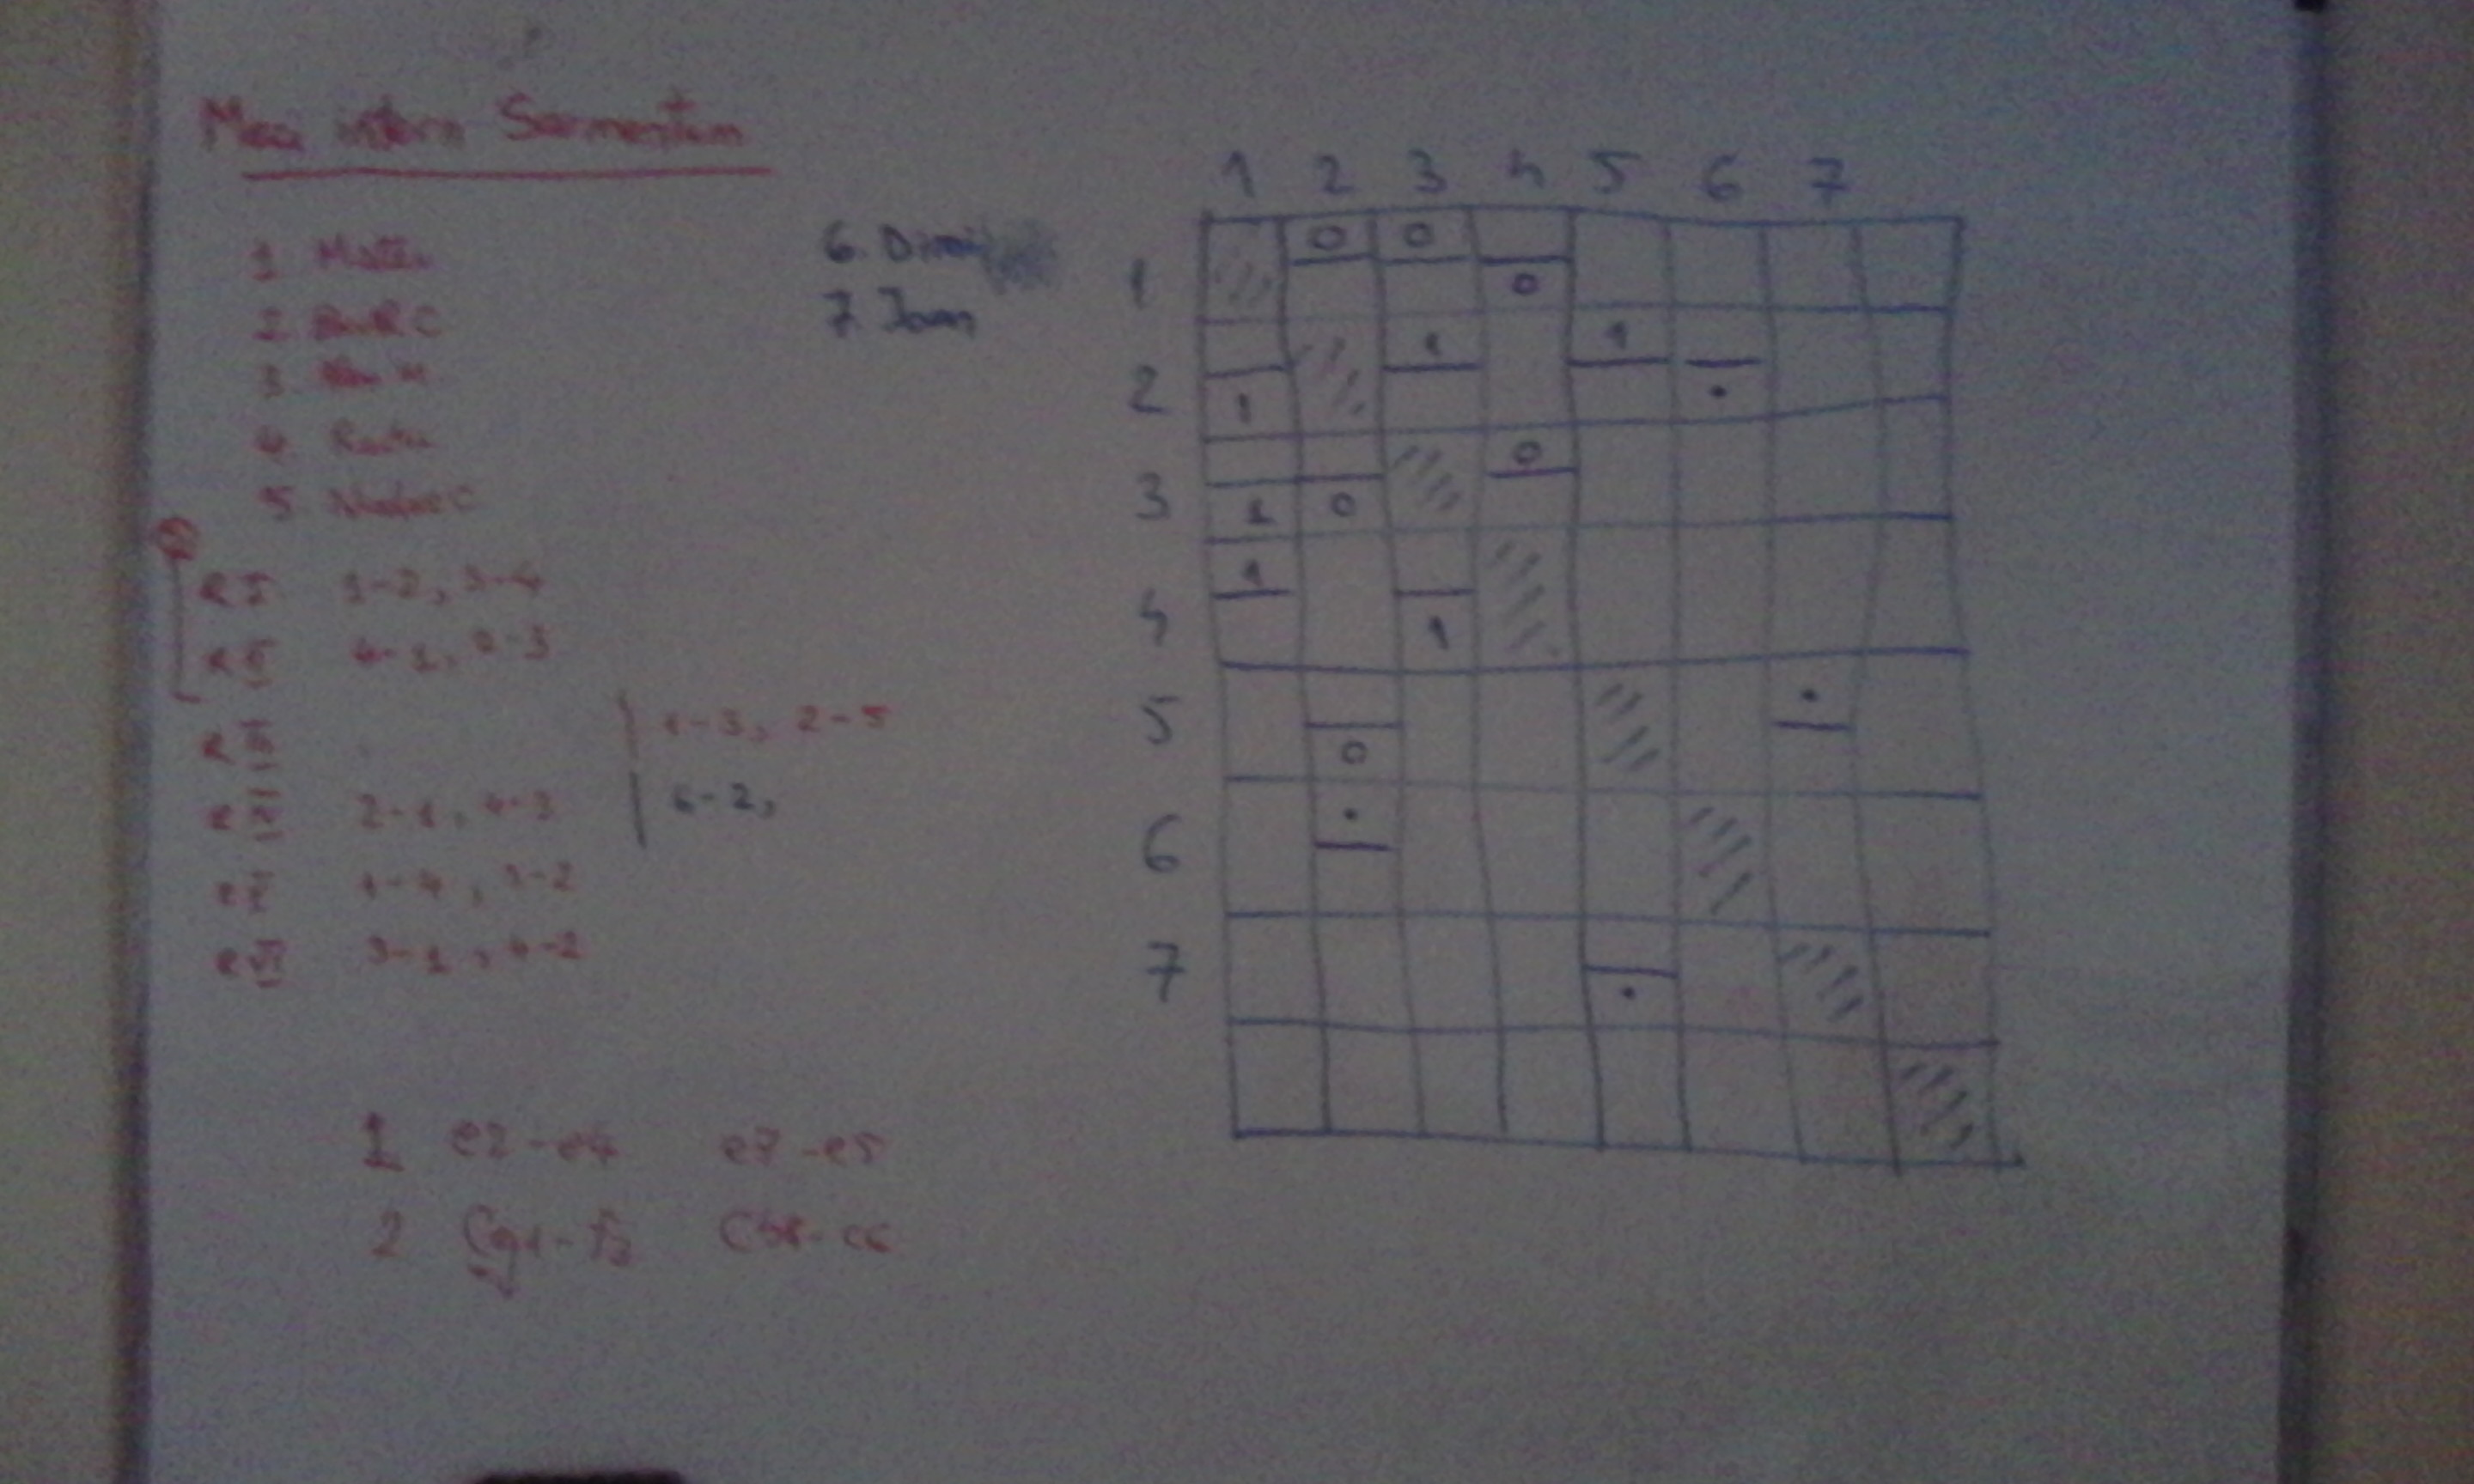 Meci intern Sarmentum
1 Matei
2 C
3 M
4
5 C
6. 
7. Ioan
R I 1-2, 3-4
R II 4-1, 2-3
R III 1-3, 2-5
R IV 2-1, 4-3 6-2,
R V 1-4, 3-2
R VI 3-1, 4-2
1 e2-e4 e7-e5
2 Cg1-f3 Cb8-c6
1 2 3 4 5 6 7
1 0 0 0
2 1 1 1 .
3 1 0 0
4 1 1
5 0 .
6 .
7 .